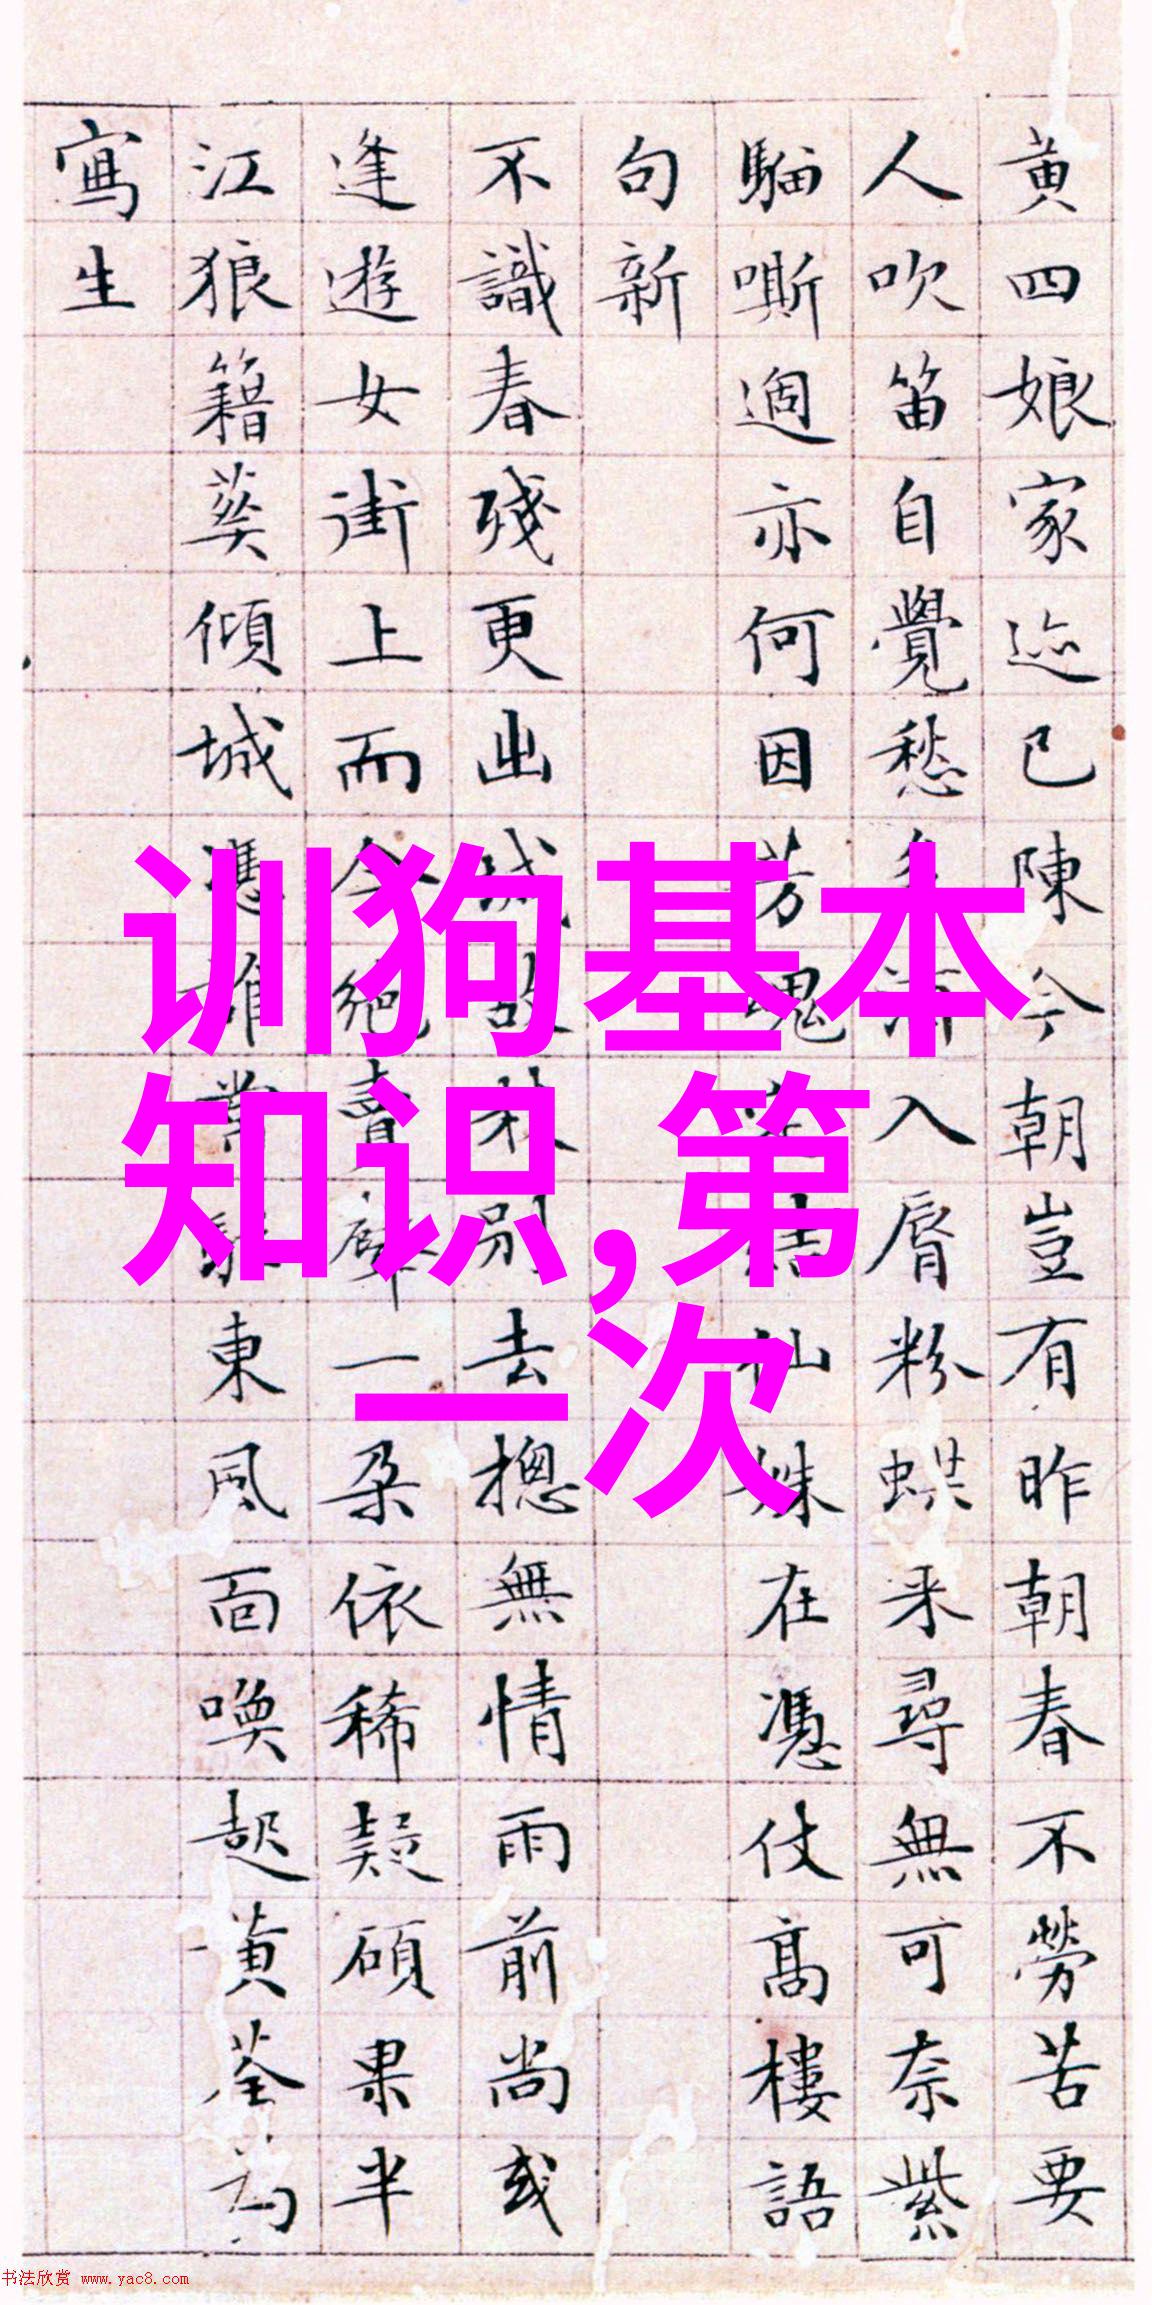 黄四娘家迹已陳今朝豈有昨朝春不勞苦要
人吹笛自覺愁入脣粉蝶来尋無可奈紫
騮嘶過亦何因芳魂仙姝在憑仗高樓語
句新
不識春殘更出城故秋別去摠無情雨前尚或
逢遊女街上而今絶賣一朵依稀疑碩果半
江狼籍葵傾城憑誰東風面喚起黄荃為
寫生
训狗基本
知识,第
一次
书法欣赏 www.yac8.com